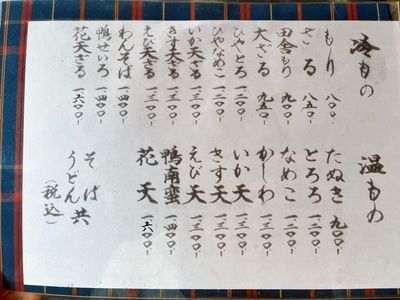 冷もの
もり 八〇〇-
ざる 八五〇-
田舎もり 九〇〇-
大ざる 九五〇-
ひやとろ 一二〇〇-
ひやなめこ 一二〇〇-
いか天ざる 一三〇〇-
きす天ざる 一三〇〇-
えび天ざる 一三〇〇-
わんそば 一四〇〇-
鴨せいろ 一四〇〇-
花天ざる 一六〇〇-
温もの
たぬき 九〇〇-
とろろ 一二〇〇-
なめこ 一二〇〇-
かしわ 一三〇〇-
いか天 一三〇〇-
きす天 一三〇〇-
えび天 一三〇〇-
鴨南蛮 一四〇〇-
花天 一六〇〇-
そば
うどん 共
(税込)